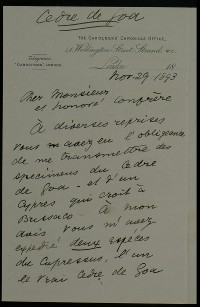 Cedre de Goa
THE GARDENERS' CHRONICLE OFFICE,
41, Wellington Street, Strand, W.C.
Telegrams
"GARDCHRON" LONDON
London 18
Nov 29 1893
Cher Monsieur
et honoré confrère
À diverses reprises
vous m'avez eu l'obligeance
de me transmettre des
specimens du Cedre
de Goa - et d'un
Cypres qui croît à
Bussaco - À mon
avis vous m'avez
expédié deux espèces
du Cupressus, l'un
le vrai Cedre de Goa